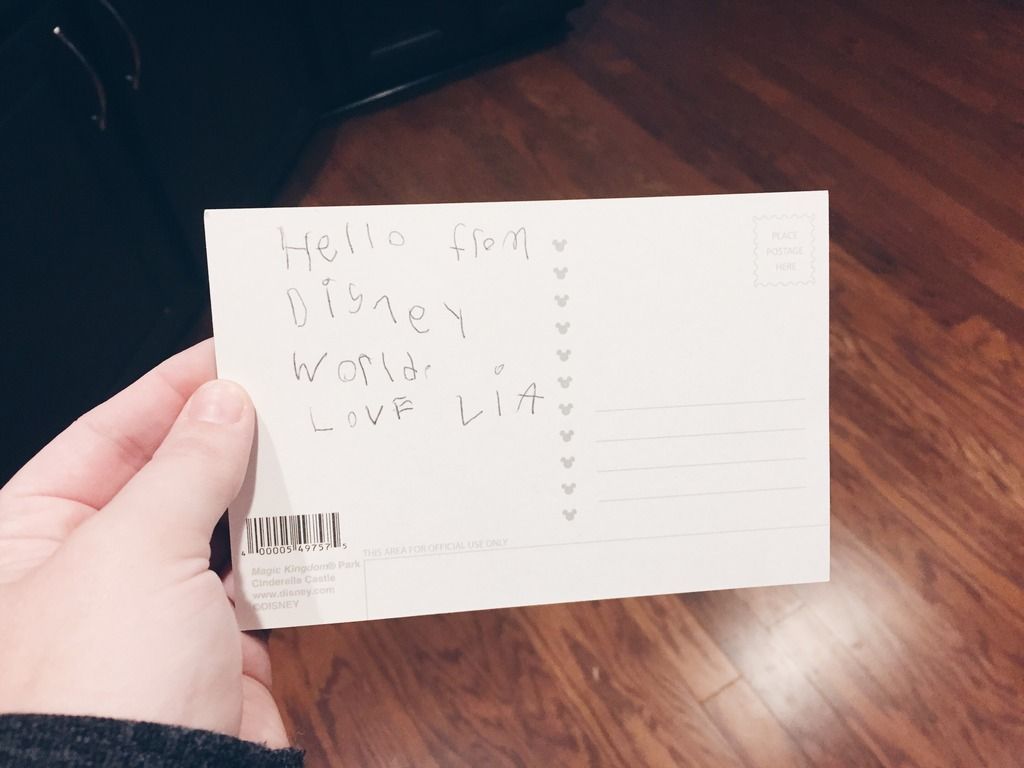 Hello from
Disney
World.
LOVE LiA
PLACE
POSTAGE
HERE
4 00005 49757 5
THIS AREA FOR OFFICIAL USE ONLY
Magic Kingdom® Park
Cinderella Castle
www.disney.com
©DISNEY